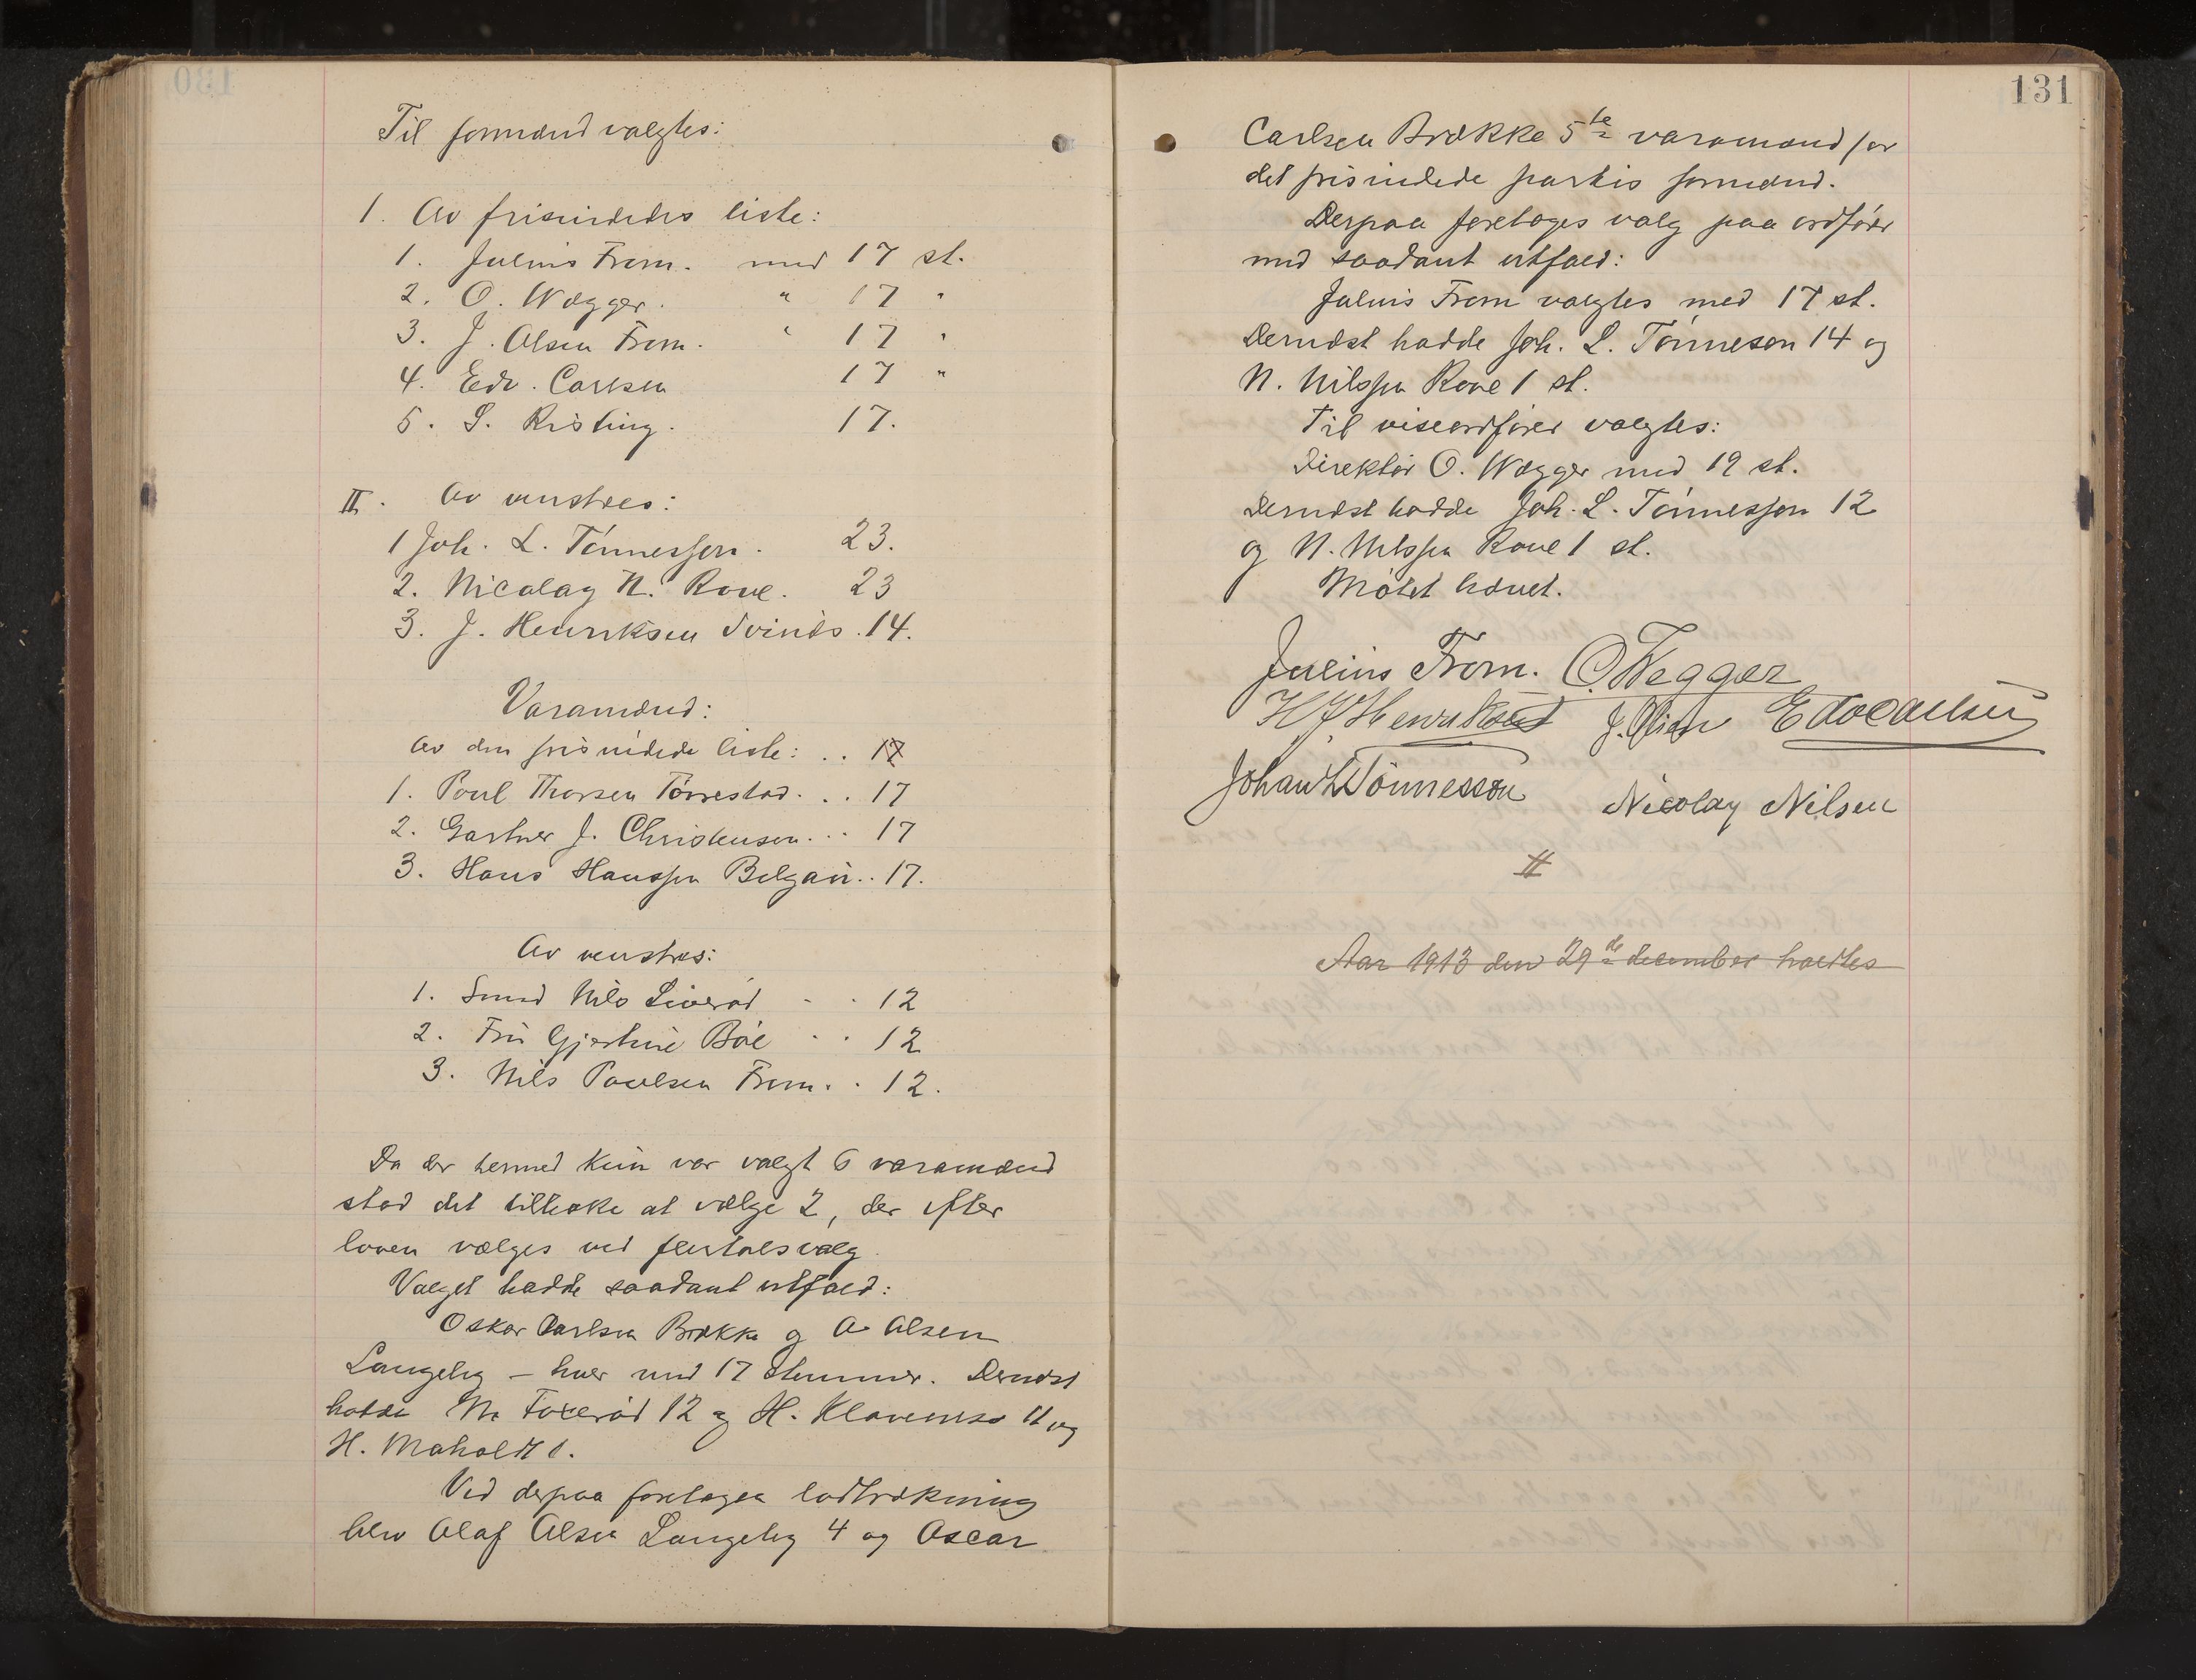 Til formænd valgtes:
1. Av frisindedes liste:
1. Julius From. med 17 st.
2. O. Wegger. " 17 "
3. J. Olsen From. " 17 "
4. Edv. Carlsen 17 "
5. S. Risting. 17.
II. Av venstres:
1 Joh. L. Tønnessen. 23.
2. Nicolay N. Roue. 23
3. J. Henriksen Svinds. 14.
Varamænd:
Av den frisindede liste: . . 17
1. Poul Thorsen Tørrestad. . . 17
2. Gartner J. Christensen. . . 17
3. Hans Hanssen Belgau. . 17.
Av venstres:
1. Smed Nils Liverød - . 12
2. Fru Gjertine Bøe . . 12
3. Nils Paulsen From. . 12.
Da der hermed kun var valgt 6 varamænd
stod det tilbake at vælge 2, der efter
loven vælges ved flertalsvalg.
Valget hadde saadant utfald:
Oskar Carlsen Brekke og O Olsen
Langeby – hver med 17 stemmer. Dernæst
hadde N. 12 og H. Klavenes 11 og
H. Maholdt 1.
Ved derpaa foretagen lodtrækning
blev Olaf Olsen Langeby 4 og Oscar
131
Carlsen Brække 5te varamand for
det frisindede partis formænd.
Derpaa foretoges valg paa ordfører
med saadant utfald:
Julius From valgtes med 17 st.
Dernæst hadde Joh. L. Tønneson 14 og
N. Nilssen Roue 1 st.
Til viseordfører valgtes:
Direktør O. Wegger med 19 st.
Dernæst hadde Joh. L. Tønnesson 12
og N. Nilssen Roue 1 st.
Møtet hævet.
Julius From. O. Wegger
H J Henriksen J. Olsen Edv Carlsen
Johan L Tönnesson Nicolay Nilsen
Aar 1913 den 29de december holdtes
130